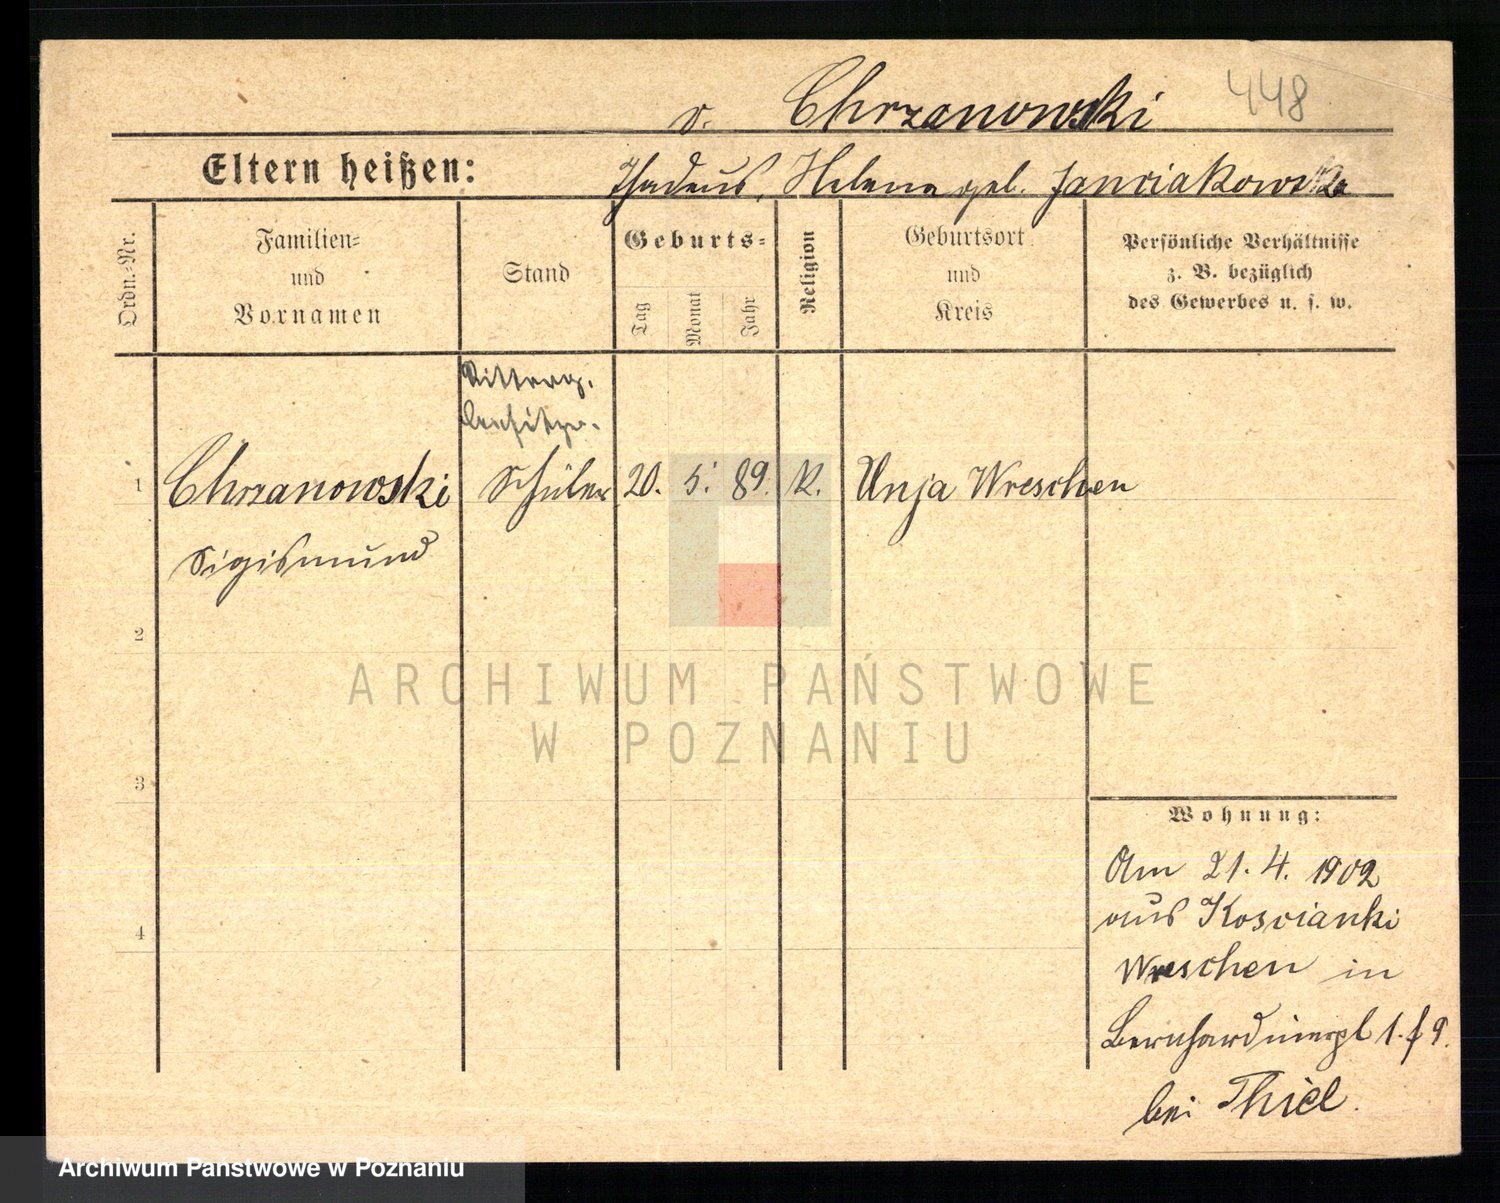 v. Chrzanowski 448
Eltern heißen: Thadeus, Helene geb. Janciakowska
Ordn.-Nr.
Familien-
und
Vornamen
Stand
Geburts-
Tag
Monat
Jahr
Religion
Geburtsort
und
Kreis
Persönliche Verhältnisse
z. B. bezüglich
des Gewerbes u. s. w.
Ritterg.
1 Chrzanowski Schüler 20. 5. 89. K. Unja Wreschen
Sigismund
2
ARCHIWUM PAŃSTWOWE
W POZNANIU
3
Wohnung:
Am 21. 4. 1902
aus Koscianki
4
Wreschen in
Bernhardinerpl 1.
bei Thiel.
Archiwum Państwowe w Poznaniu